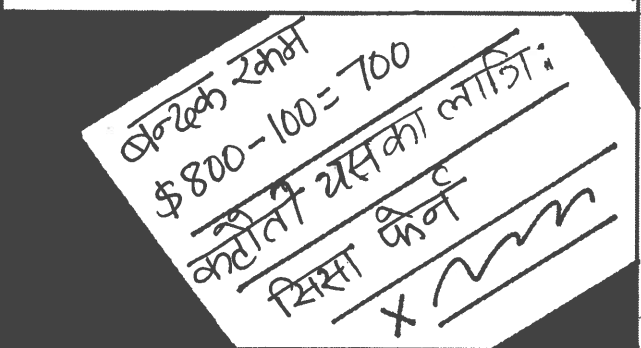 बन्धक रकम
$800-100=700
कटौती यसका लागि:
सिसा फेर्न
x